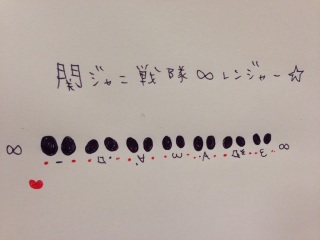 関ジャニ戦隊∞レンジャー☆
∞ ∞